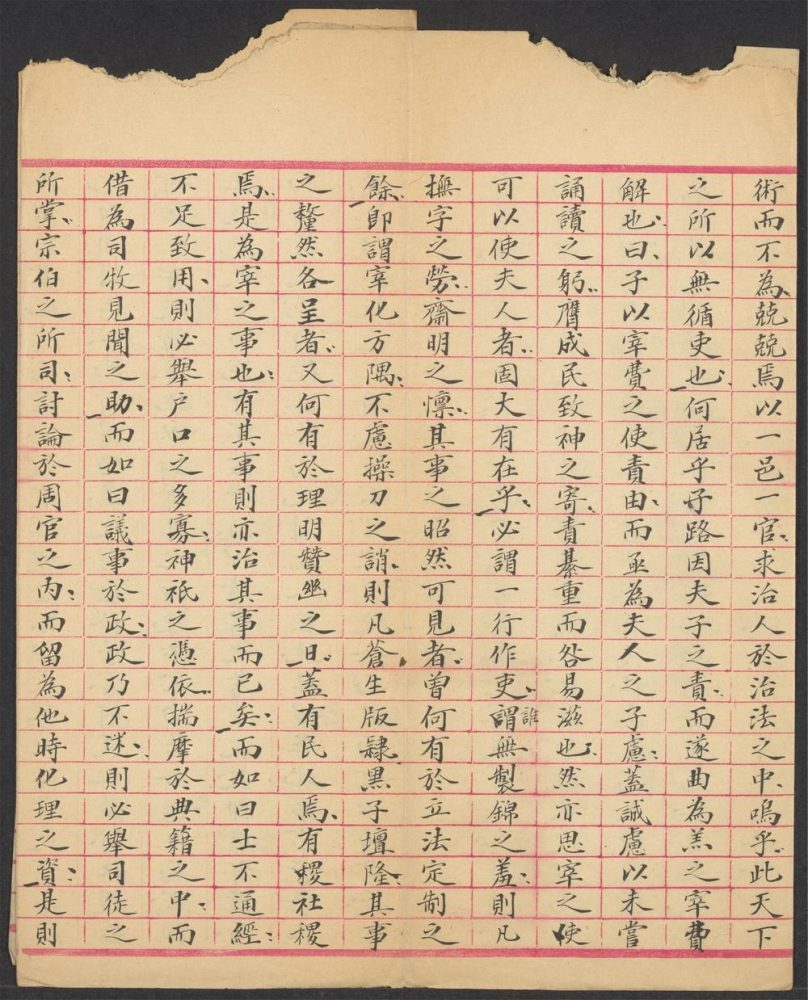 術而不為兢兢焉以一邑一官求治人於治法之中嗚乎此天下
之所以無循吏也何居乎子路因夫子之責而遂曲為羔之宰費
解也曰子以宰費之使責由而亟為夫人之子慮蓋誠慮以未嘗
誦讀之躬膺成民致神之寄責綦重而咎易滋也然亦思宰之使
可以使夫人者固大有在乎必謂一行作吏誰謂無製錦之羞則凡
撫字之勞齋明之懍其事之昭然可見者曾何有於立法定制之
餘即謂宰化方隅不慮操刀之誚則凡蒼生版隸黑子壇隆其事
之釐然各呈者又何有於理明贊幽之日蓋有民人焉有稷社稷
焉是為宰之事也有其事則亦治其事而已矣而如曰士不通經
不足致用則必舉戶口之多寡神祇之憑依揣摩於典籍之中而
借為司牧見聞之助而如曰議事於政政乃不迷則必舉司徒之
所掌宗伯之所司討論於周官之內而留為他時化理之資是則